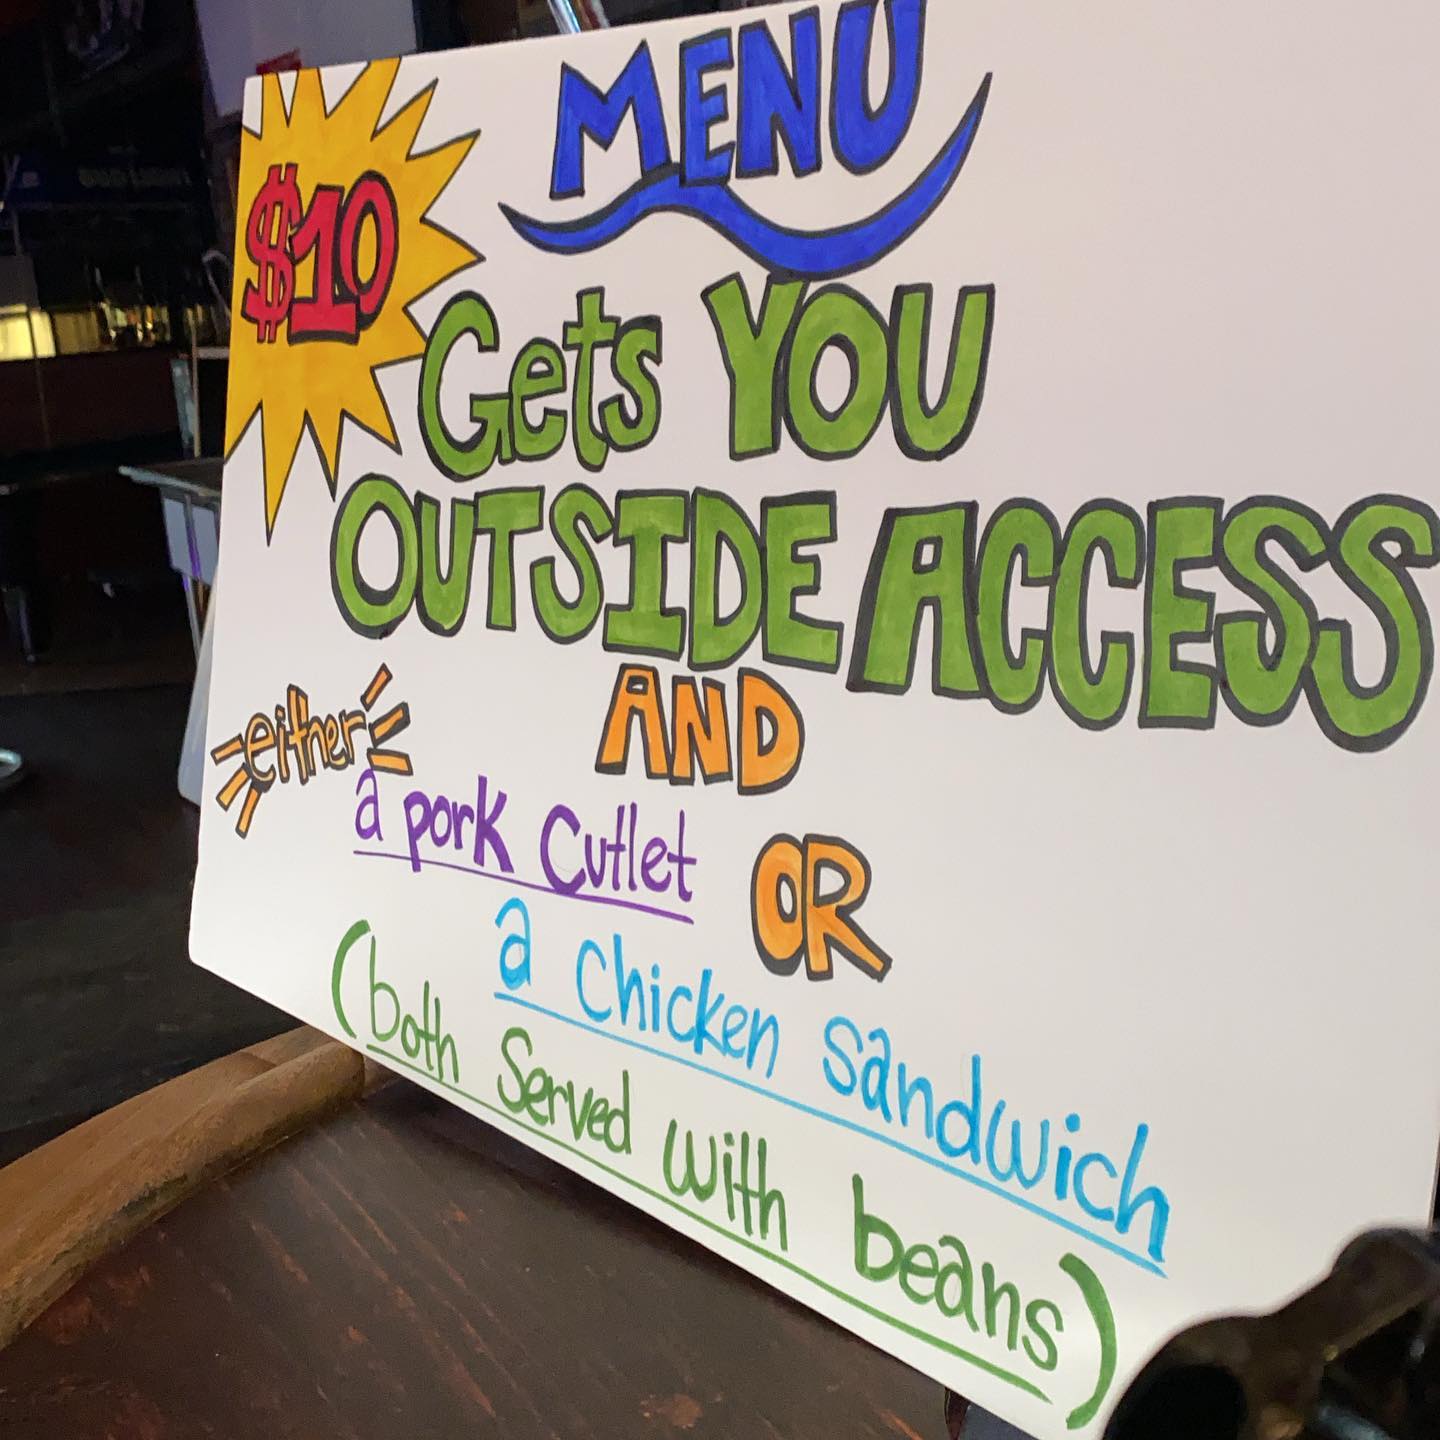 MENU
$10
Gets YOU
OUTSIDE ACCESS
AND
either
a pork Cutlet
OR
a chicken sandwich
(both Served with beans)